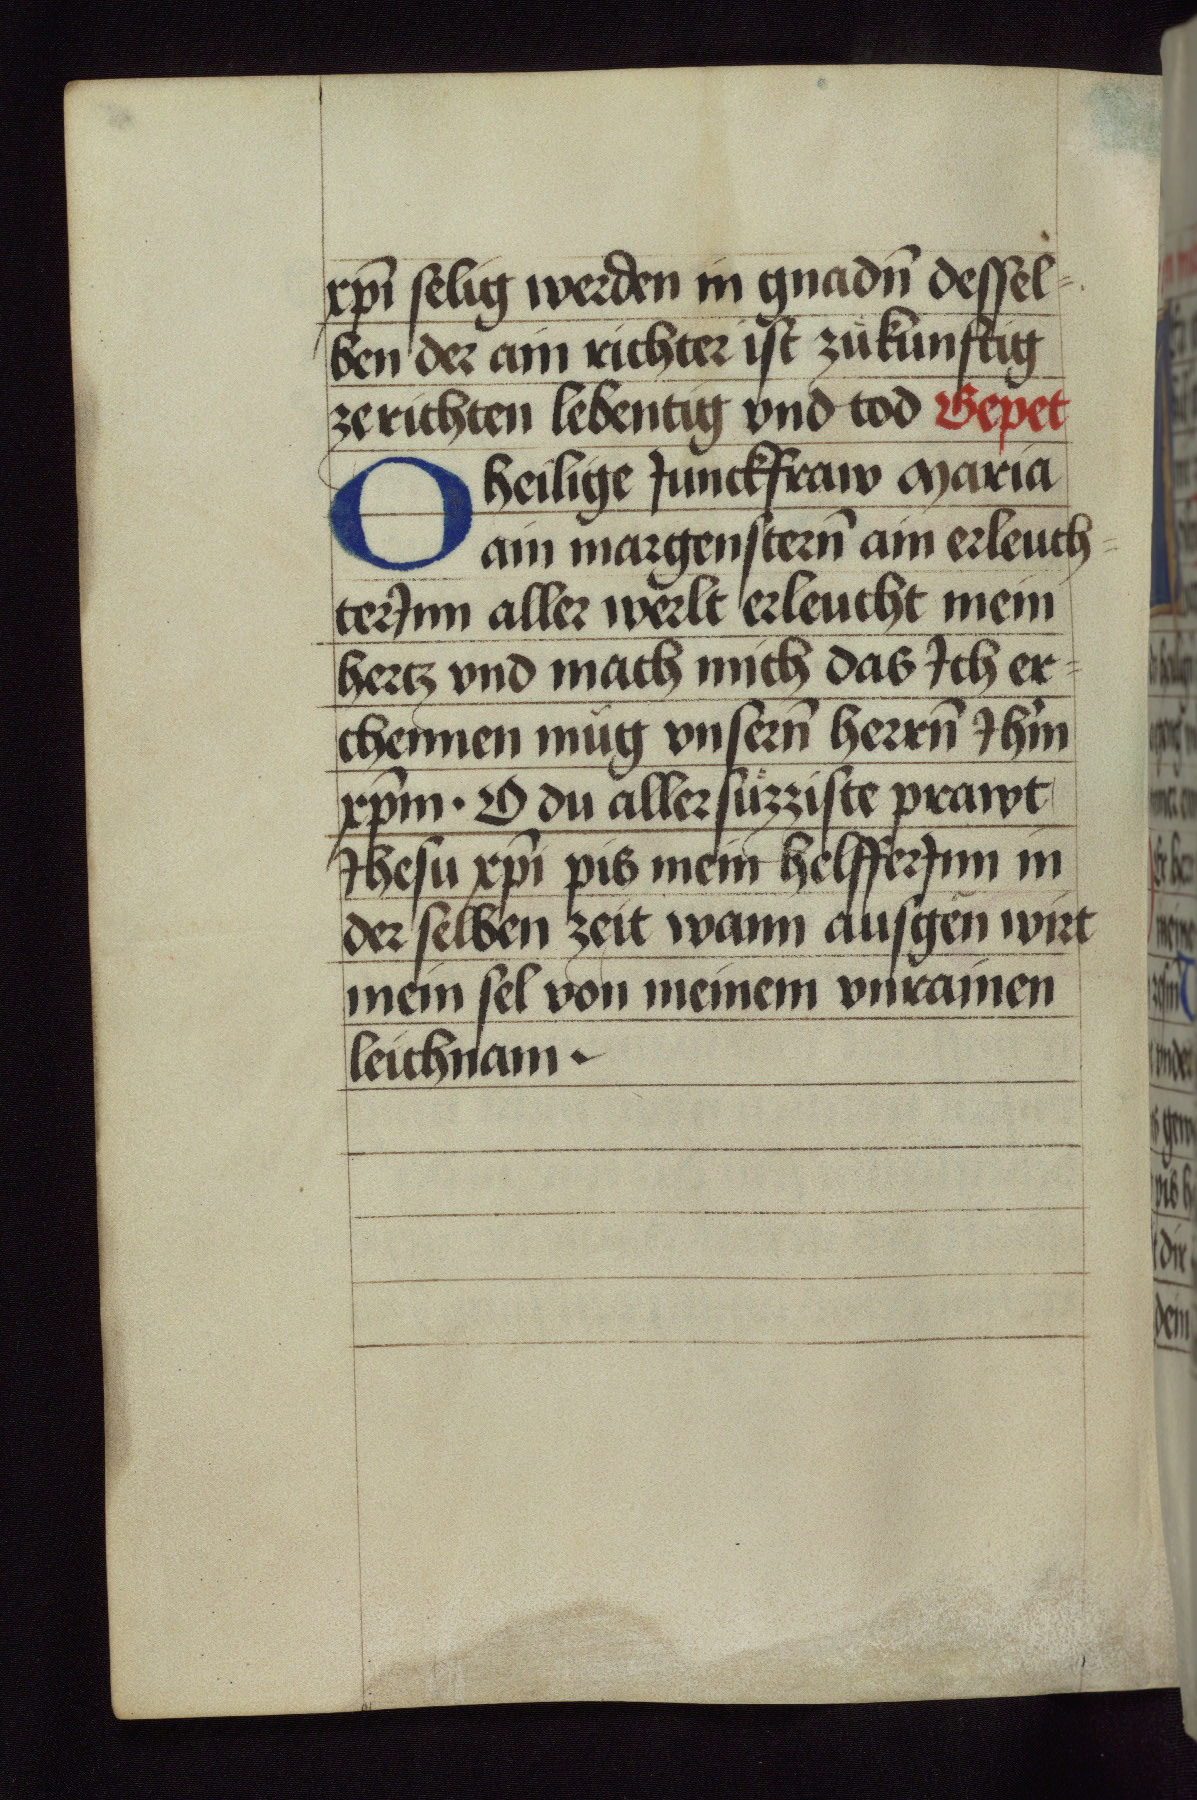 xp̄i selig werden in gnadn̄ dessel-
ben der ain richter ist zůkunftig
ze richten lebentig vnd tod Gepet
O heilige Junckfraw Maria
ain margenstern̄ ain erleuch-
terJnn aller werlt erleucht mein
hertz vnd mach mich das Jch er-
chennen můg vnsern̄ herrn̄ Jhm̄
xp̄m · O du aller süzziste prawt
Jhesu xp̄i pis mein helfferJnn in
der selben zeit wann ausgen wirt
mein sel von meinem vnrainen
leichnam ·